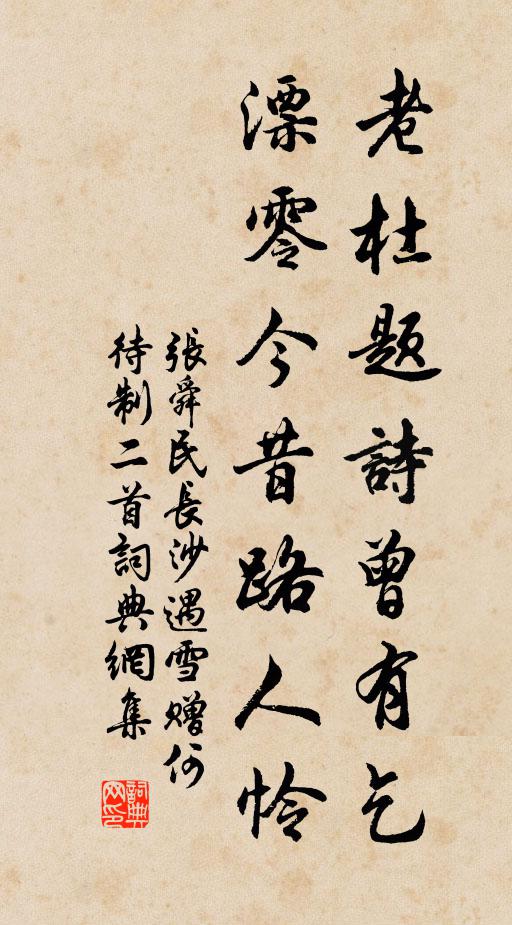 老杜題詩曾有乞
漂零今昔路人怜
張舜民長沙遇雪贈何
待制二首詞典網集
詞典
网印